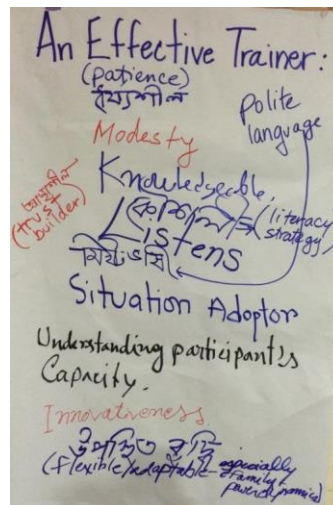 An Effective Trainer:
(patience)
ধৈর্য্যশীল
polite
language
Modesty
Knowledgeable,
(trust
builder)
(literacy
strategy)
Listens
Situation Adoptor
Understanding participant's
Capacity.
Innovativeness.
(flexible/adaptable-especially
family
power dynamics)